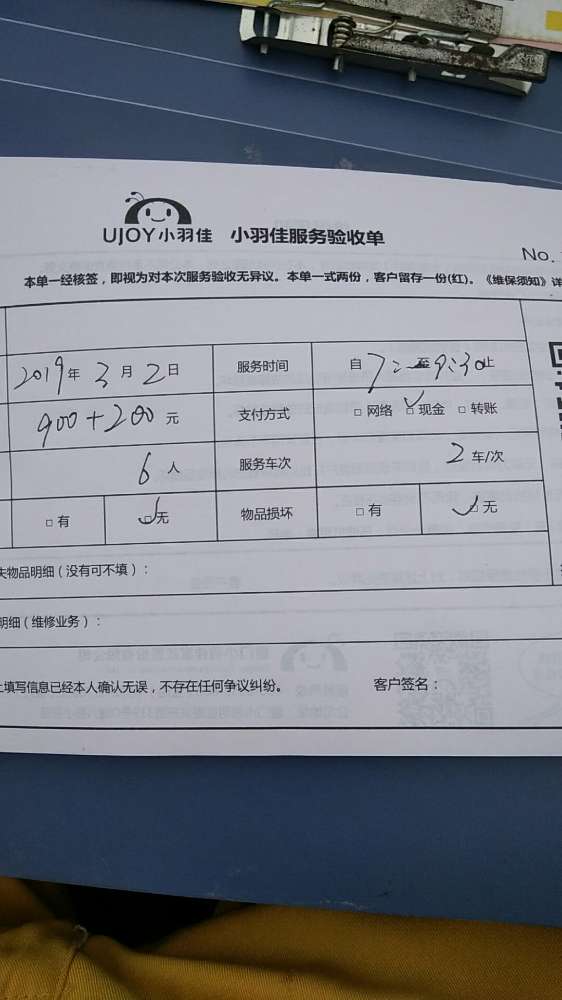 UJOY小羽佳 小羽佳服务验收单
No.
本单一经核签，即视为对本次服务验收无异议。本单一式两份，客户留存一份(红)。《维保须知》详
2019年 3月 2日 服务时间 自 7: 至 9:30 止
900+200 元 支付方式 □ 网络 □ 现金 □ 转账
6 人 服务车次 2 车/次
□ 有 □ 无 物品损坏 □ 有 □ 无
失物品明细（没有可不填）：
明细（维修业务）：
上填写信息已经本人确认无误，不存在任何争议纠纷。 客户签名：